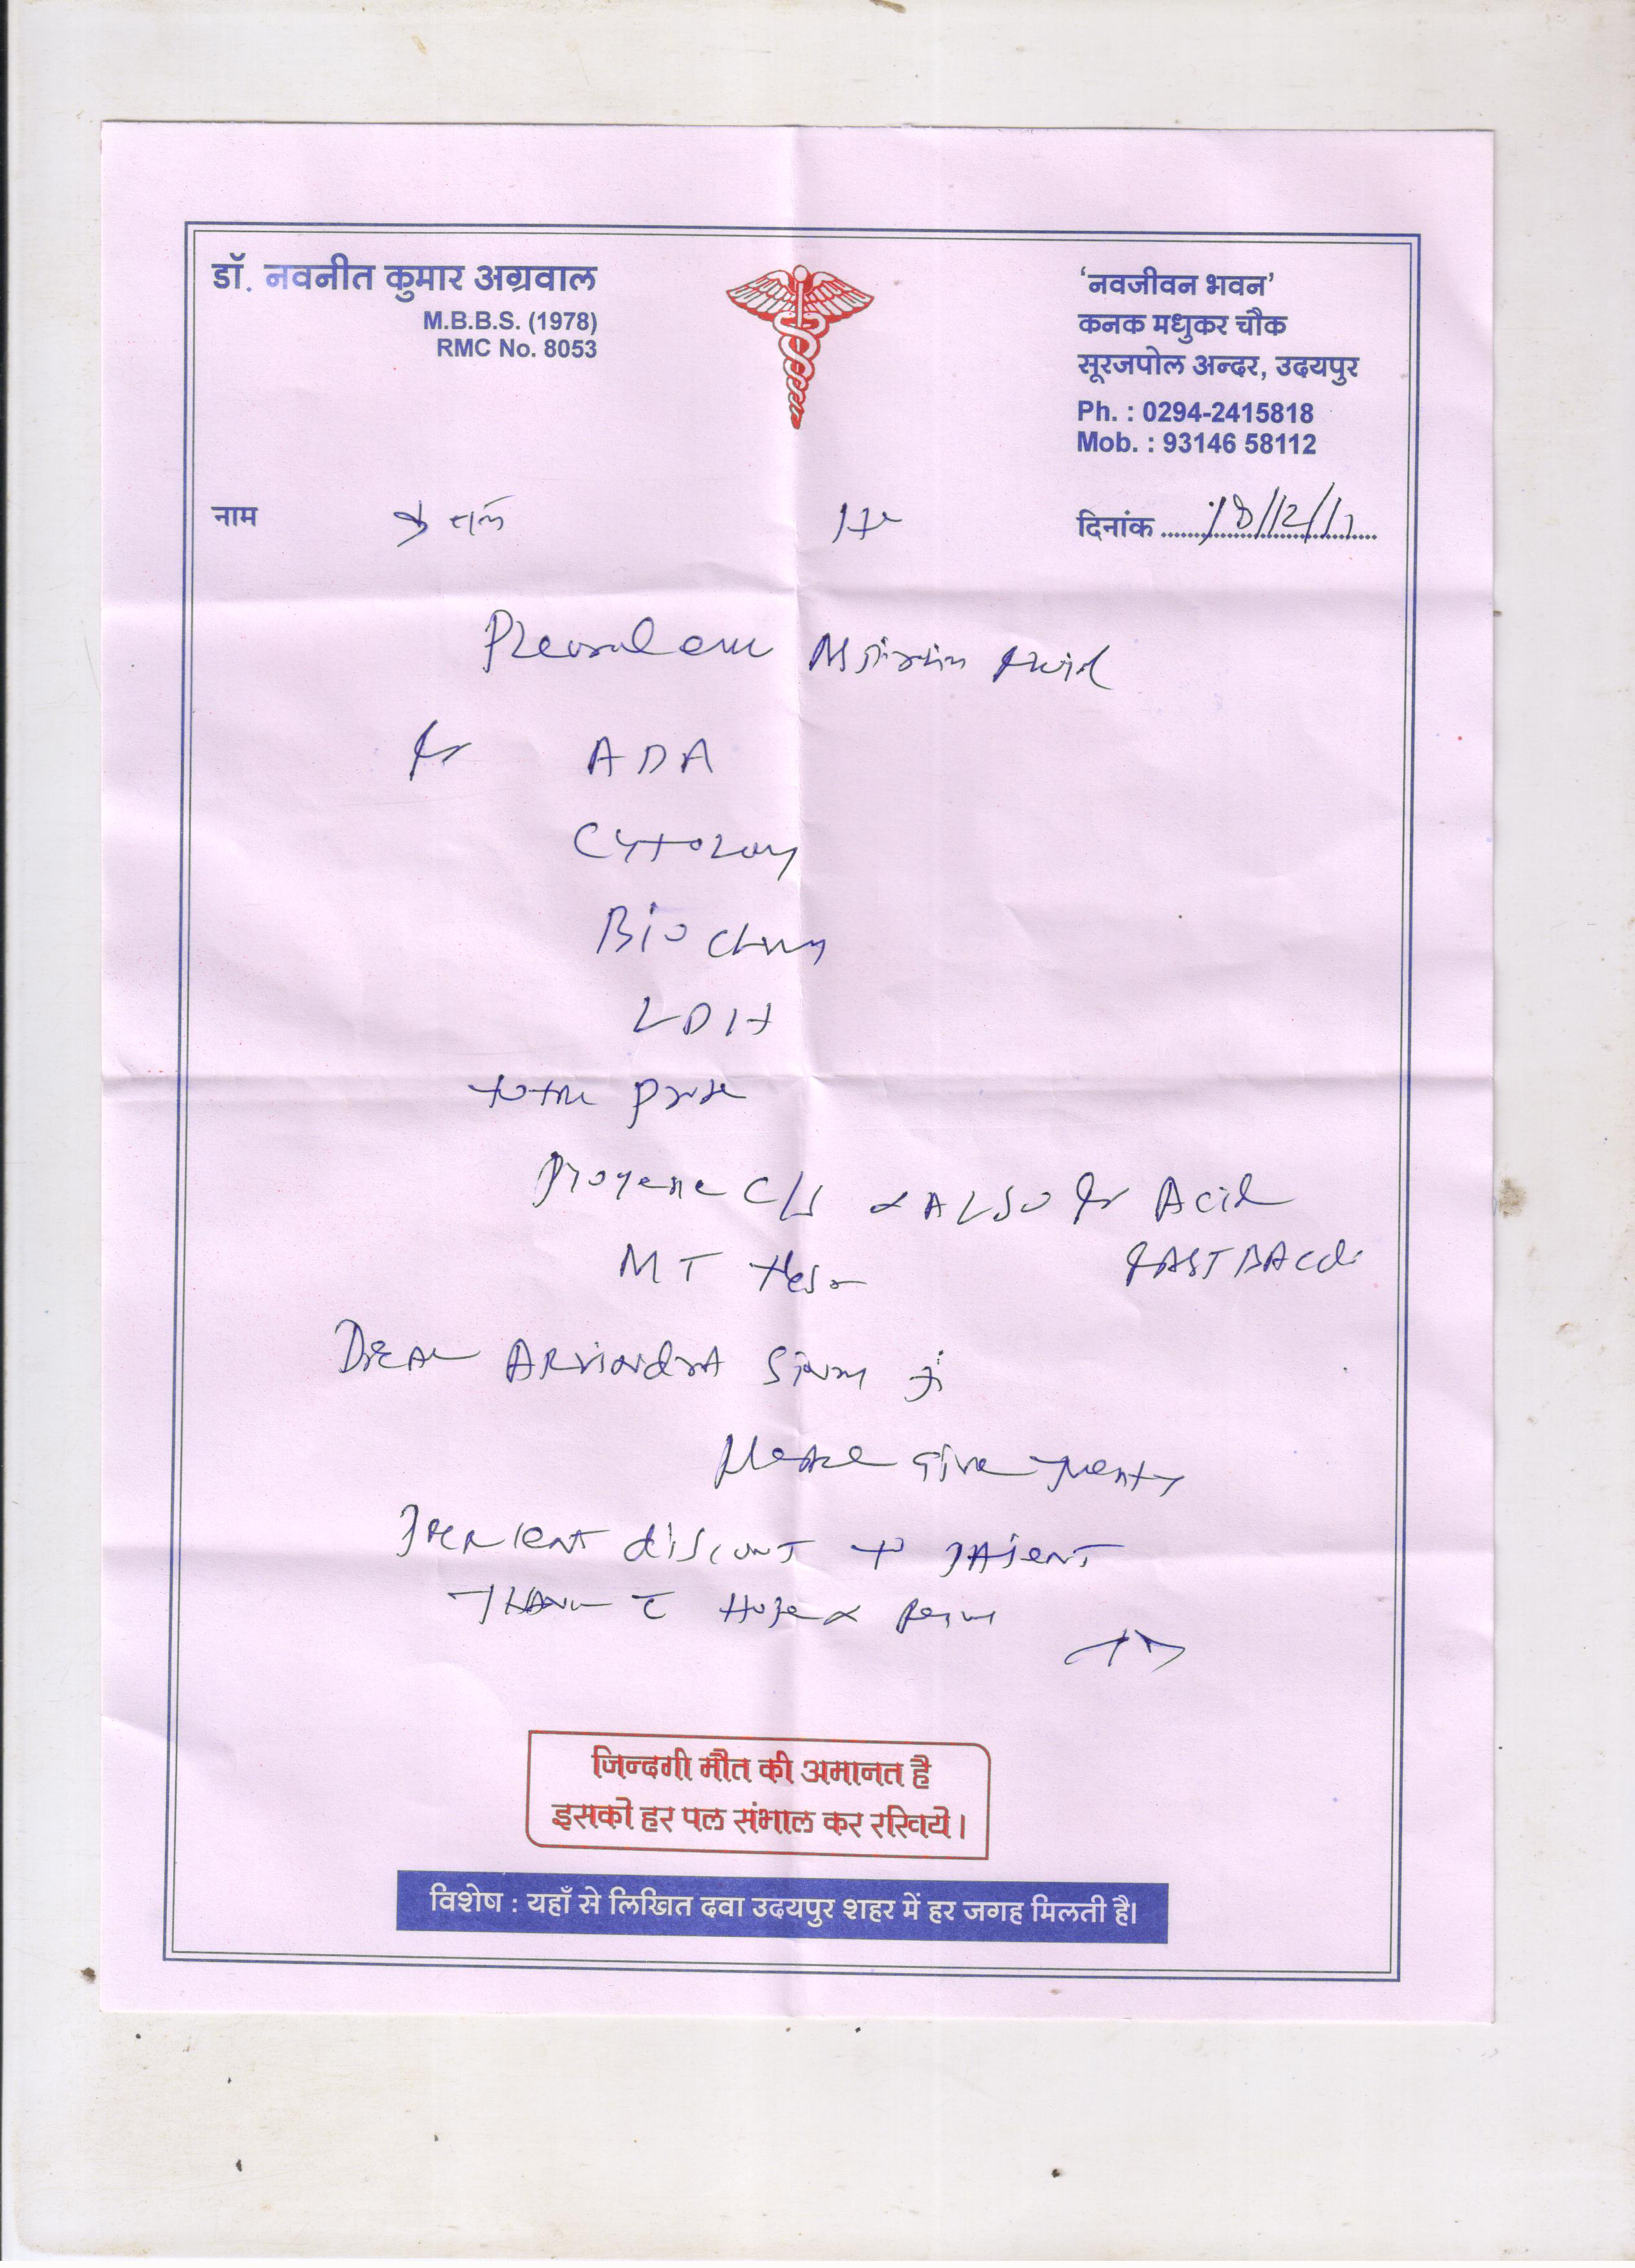 डॉ. नवनीत कुमार अग्रवाल
M.B.B.S. (1978)
RMC No. 8053
‘नवजीवन भवन’
कनक मधुकर चौक
सूरजपोल अन्दर, उदयपुर
Ph. : 0294-2415818
Mob. : 93146 58112
नाम
दिनांक 18/12/17
Pleural fluid
for ADA
Cytology
Bio chem
LDH
total
Pyogene C/S & ALSO for Acid
FAST BAcilli
MT test
Dear ARvindra Singh ji
please give twenty
percent discount to patient
Thank c Hope &
जिन्दगी मौत की अमानत है
इसको हर पल संभाल कर रखिये।
विशेष : यहाँ से लिखित दवा उदयपुर शहर में हर जगह मिलती है।